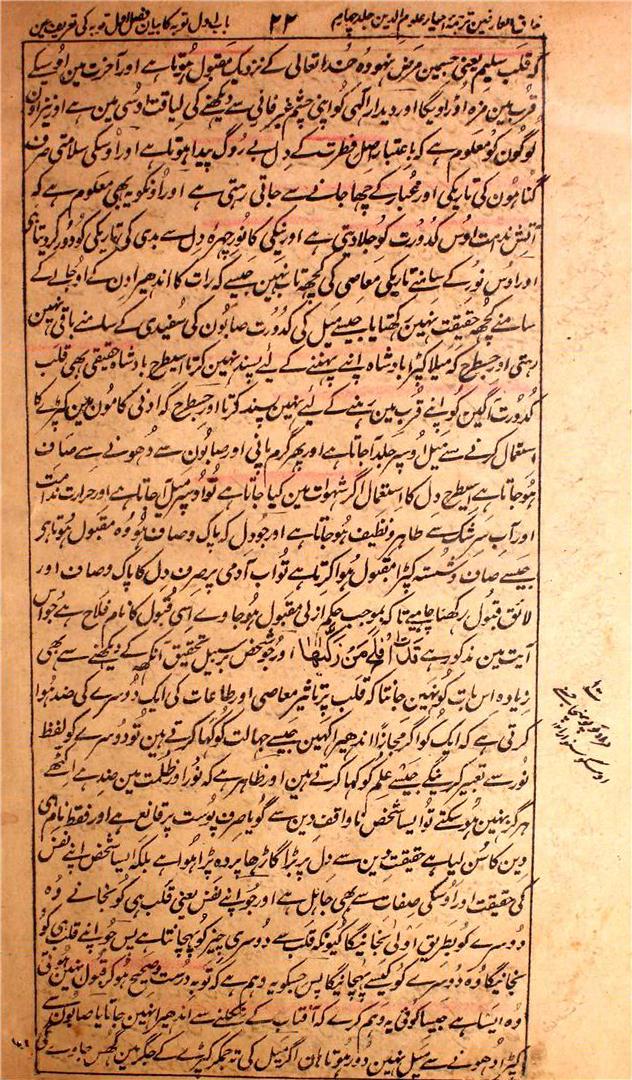 مذاق العارفین ترجمۂ احیاء علوم الدین جلد چہارم ۲۲ باب اول توبہ کا بیان فصل اول توبہ کی تعریف میں
کہ قلب سلیم یعنی جسمین مرض نہو وہ خدا تعالی کے نزدیک مقبول ہوتا ہے اور آخرت مین اوسکے
قرب مین مزہ اوڑاویگا اور دیدار الٰہی کو اپنی چشم غیر فانی سے دیکھنے کی لیاقت اوسی مین ہے اور نیز اون
لوگون کو معلوم ہے کہ باعتبار اصل فطرت کے دل بے روگ پیدا ہوتا ہے اور اوسکی سلامتی صرف
گناہون کی تاریکی اور غبار کے چھا جانے سے جاتی رہتی ہے اور اونکو یہ بھی معلوم ہے کہ
آتش ندامت اوس کدورت کو جلا دیتی ہے اور نیکی کا نور چہرہ دل سے بدی کی تاریکی کو دور کر دیتا ہی
اور اوس نور کے سامنے تاریکی معاصی کی کچھ تاب نہین جیسے کہ رات کا اندھیرا دن کے اوجالے کے
سامنے کچھ حقیقت نہین رکھتا یا جیسے میل کی کدورت صابون کی سفیدی کے سامنے باقی نہین
رہتی اور جسطرح کہ میلا کپڑا بادشاہ اپنے پہننے کے لیے پسند نہین کرتا اسیطرح بادشاہ حقیقی بھی قلب
کدورت آگین کو اپنے قرب مین رہنے کے لیے نہین پسند کرتا اور جسطرح کہ ادنی کامون مین کپڑے کا
استعمال کرنے سے میل اوسپر جلد آجاتا ہے اور پھر گرم پانی اور صابون سے دھونے سے صاف
ہو جاتا ہے اسیطرح دل کا استعمال اگر شہوات مین کیا جاتا ہے تو اوسپر میل آجاتا ہے اور حرارت ندامت
اور آب سرشک سے طاہر و نظیف ہو جاتا ہے اور جو دل کہ پاک و صاف ہو وہ مقبول ہوتا ہی
جیسے صاف و شستہ کپڑا مقبول ہوا کرتا ہے تو اب آدمی پر صرف دل کا پاک و صاف اور
لائق قبول رکھنا چاہیے تاکہ بموجب حکم ازلی مقبول ہو جاوے اسی قبول کا نام فلاح ہے جو اس
آیت مین مذکور ہے قَدْ اَفْلَحَ مَنْ زَكّٰهَا اور جو شخص بر سبیل تحقیق آنکھ کے دیکھنے سے بھی
زیادہ اس بات کو نہین جانتا کہ قلب پر تاثیر معاصی اور طاعات کی ایک دوسرے کی ضد ہوا
کرتی ہے کہ ایک کو اگر مجازاً اندھیرا کہین جیسے جہالت کو کہا کرتے ہین تو دوسرے کو لفظ
نور سے تعبیر کرینگے جیسے علم کو کہا کرتے ہین اور ظاہر ہے کہ نور اور ظلمت مین ضد ہے اکٹھے
ہرگز نہین ہو سکتے تو ایسا شخص ناواقف دین سے گویا صرف پوست پر قانع ہے اور فقط نام ہی
دین کا سن لیا ہے حقیقت دین سے دل پر بڑا گاڑھا پردہ پڑا ہوا ہے بلکہ ایسا شخص اپنے نفس
کی حقیقت اور اوسکی صفات سے بھی جاہل ہے اور جو اپنے نفس یعنی قلب ہی کو نجانے وہ
دوسرے کو بطریق اولی نجانیگا کیونکہ قلب سے دوسری چیز کو پہچانتا ہے پس جو اپنے قلب ہی کو
نجانیگا وہ دوسرے کو کیسے پہچانیگا پس جسکو یہ وہم ہے کہ توبہ درست صحیح ہو کر قبول نہین ہوتی
وہ ایسا ہے جیسا کوئی یہ وہم کرے کہ آفتاب کے نکلنے سے اندھیرا نہین جاتا یا صابون سے
کپڑا دھونے سے میل نہین دور ہوتا ہان اگر میل کی تہ جمکر کپڑے کے جگر مین گھس جاوے تو